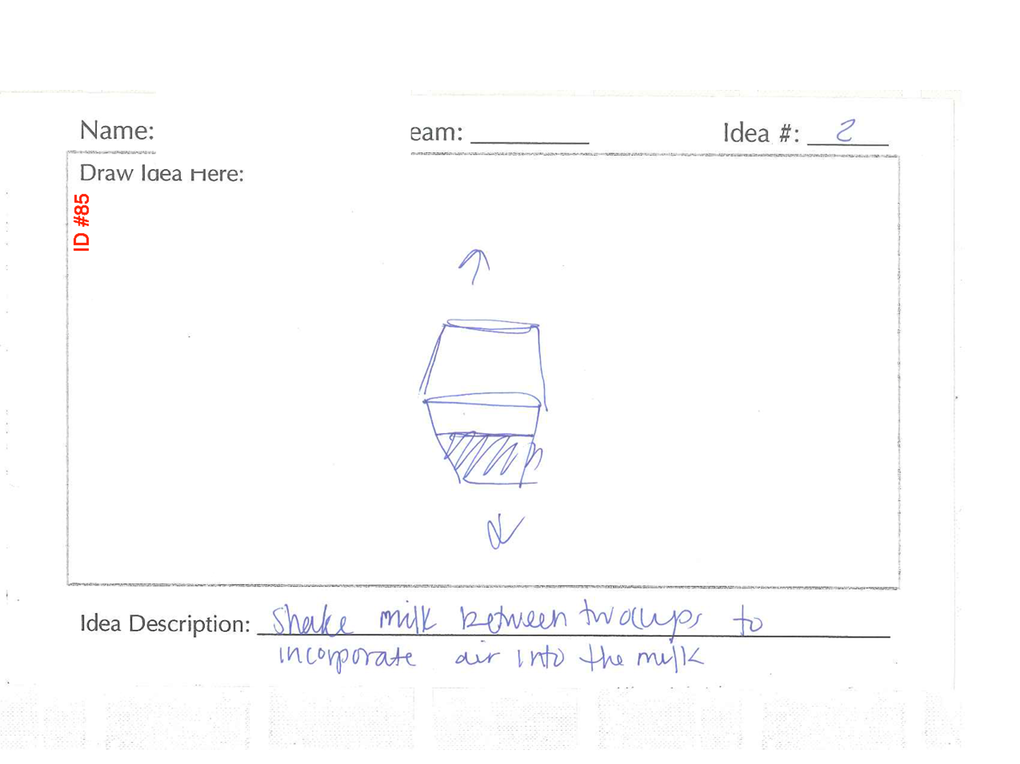 Name:
eam:
Idea #: 2
Draw Idea Here:
ID #85
Idea Description: Shake milk between two cups to
incorporate air into the milk